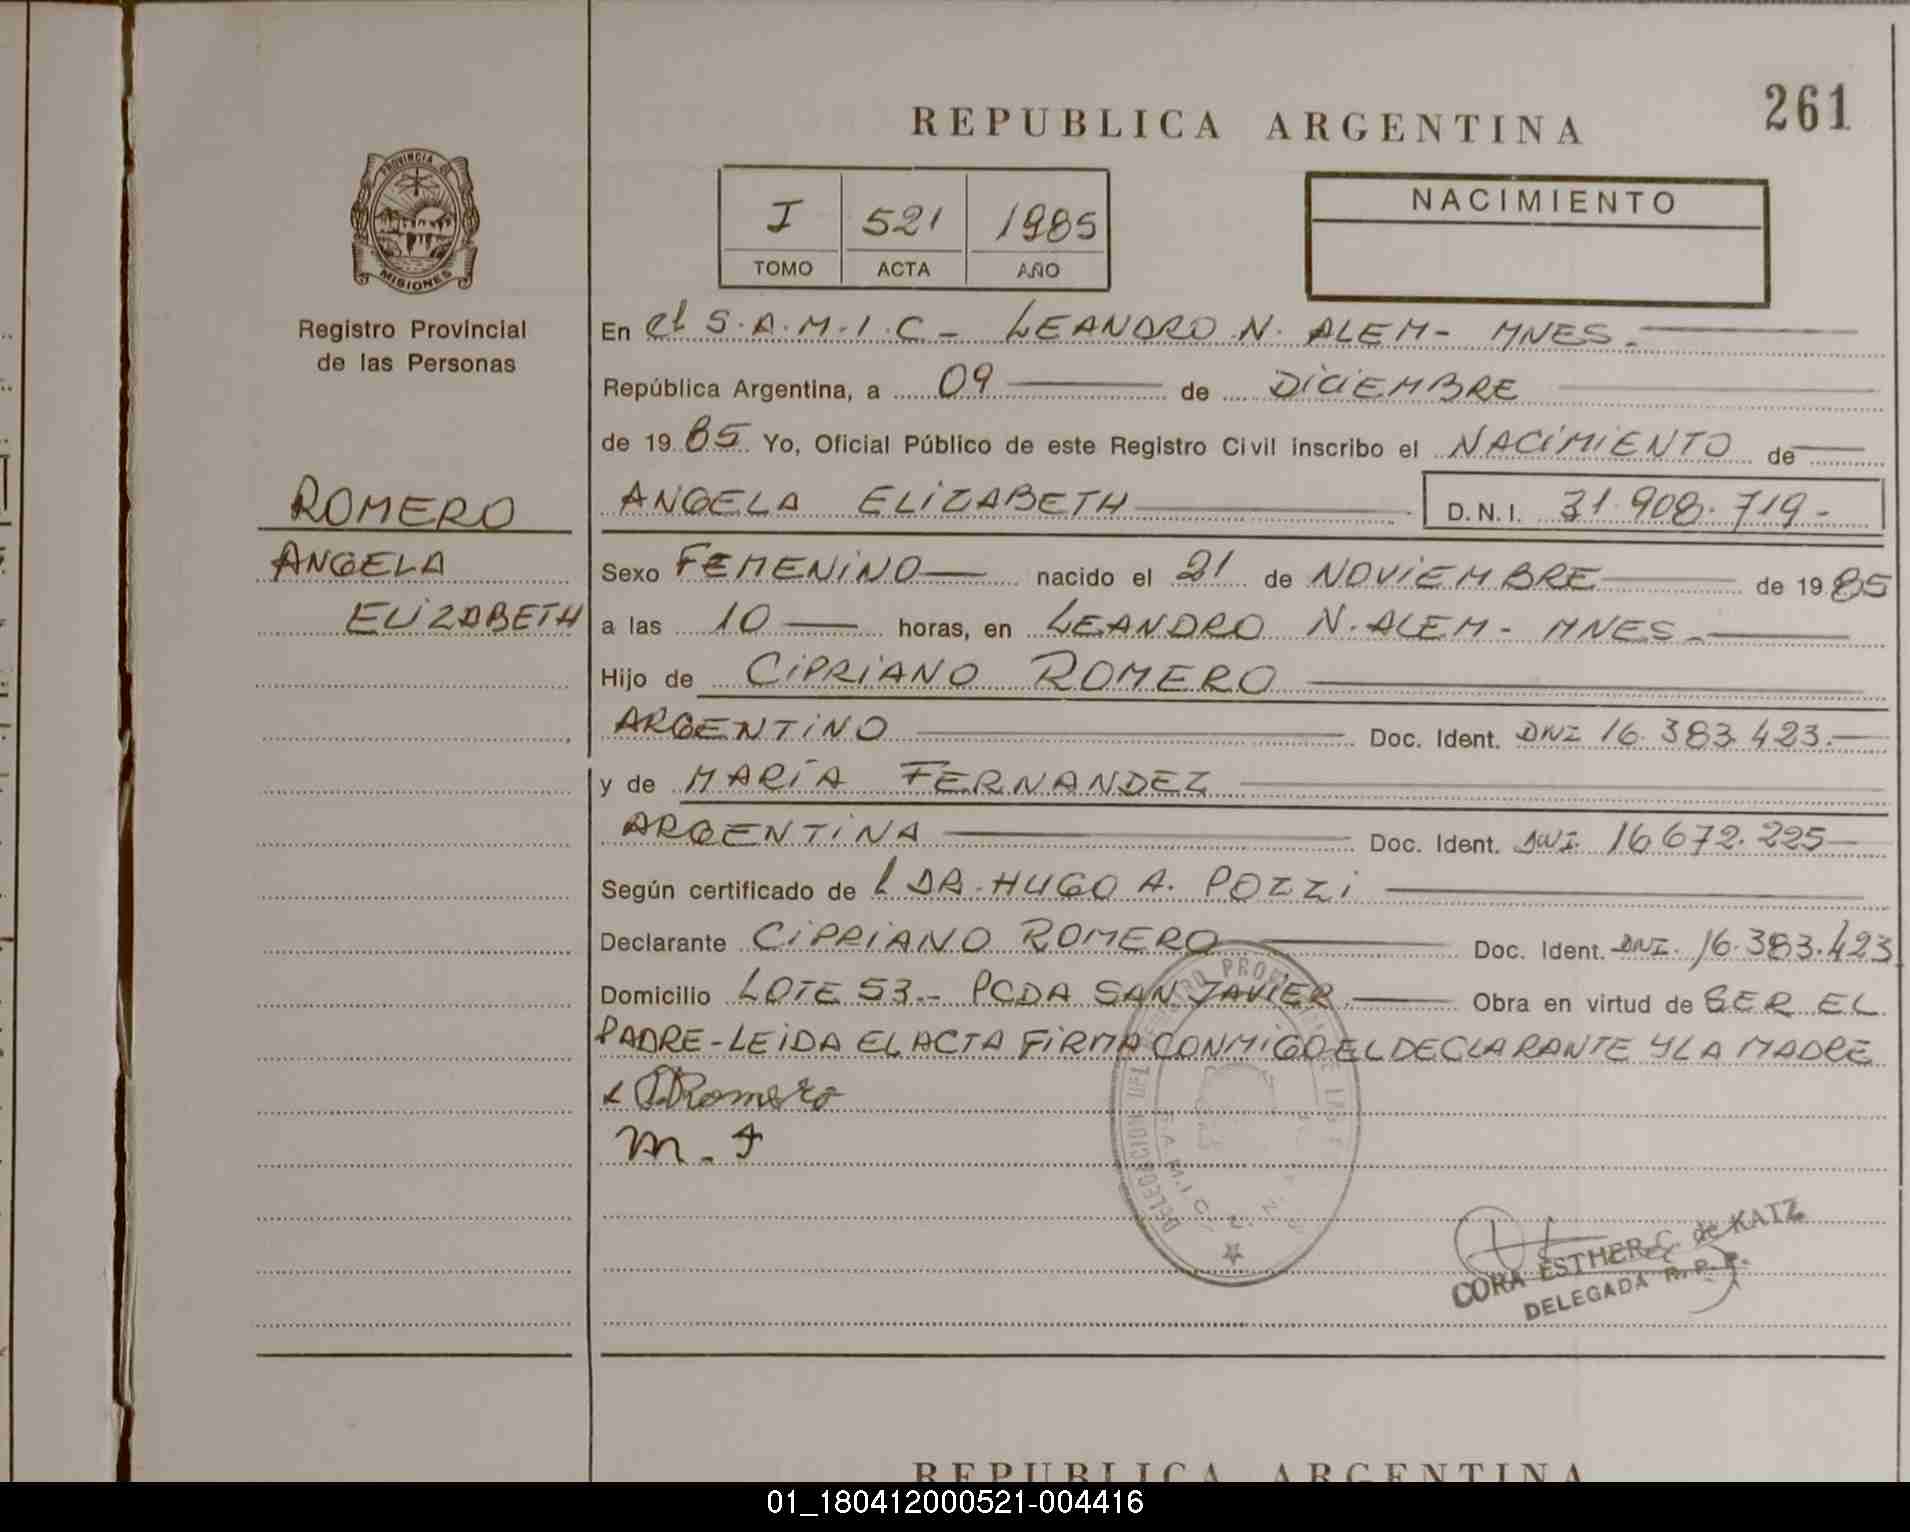 261
REPUBLICA ARGENTINA
PROVINCIA DE
MISIONES
Registro Provincial
de las Personas
I 521 1985
TOMO ACTA AÑO
NACIMIENTO
En el S.A.M.I.C - LEANDRO N. ALEM - MNES.
República Argentina, a 09 de DICIEMBRE
de 19 85 Yo, Oficial Público de este Registro Civil inscribo el NACIMIENTO de
ROMERO
ANGELA ELIZABETH D.N.I. 31.908.719-
ANGELA
ELIZABETH
Sexo FEMENINO nacido el 21 de NOVIEMBRE de 19 85
a las 10 horas, en LEANDRO N. ALEM - MNES.
Hijo de CIPRIANO ROMERO
ARGENTINO Doc. Ident. DNI 16.383.423.
y de MARÍA FERNANDEZ
ARGENTINA Doc. Ident. DNI. 16.672.225
Según certificado de DR. HUGO A. POZZI
Declarante CIPRIANO ROMERO Doc. Ident. DNI. 16.383.423
Domicilio LOTE 53.- PCDA SAN JAVIER Obra en virtud de SER EL
PADRE - LEIDA EL ACTA FIRMA CONMIGO EL DECLARANTE Y LA MADRE
Romero
M. F
DELEGACION DEL REGISTRO PROVINCIAL DE LAS
CORA ESTHER C. de KATZ
DELEGADA R. P. P.
REPUBLICA ARGENTINA
01_180412000521-004416